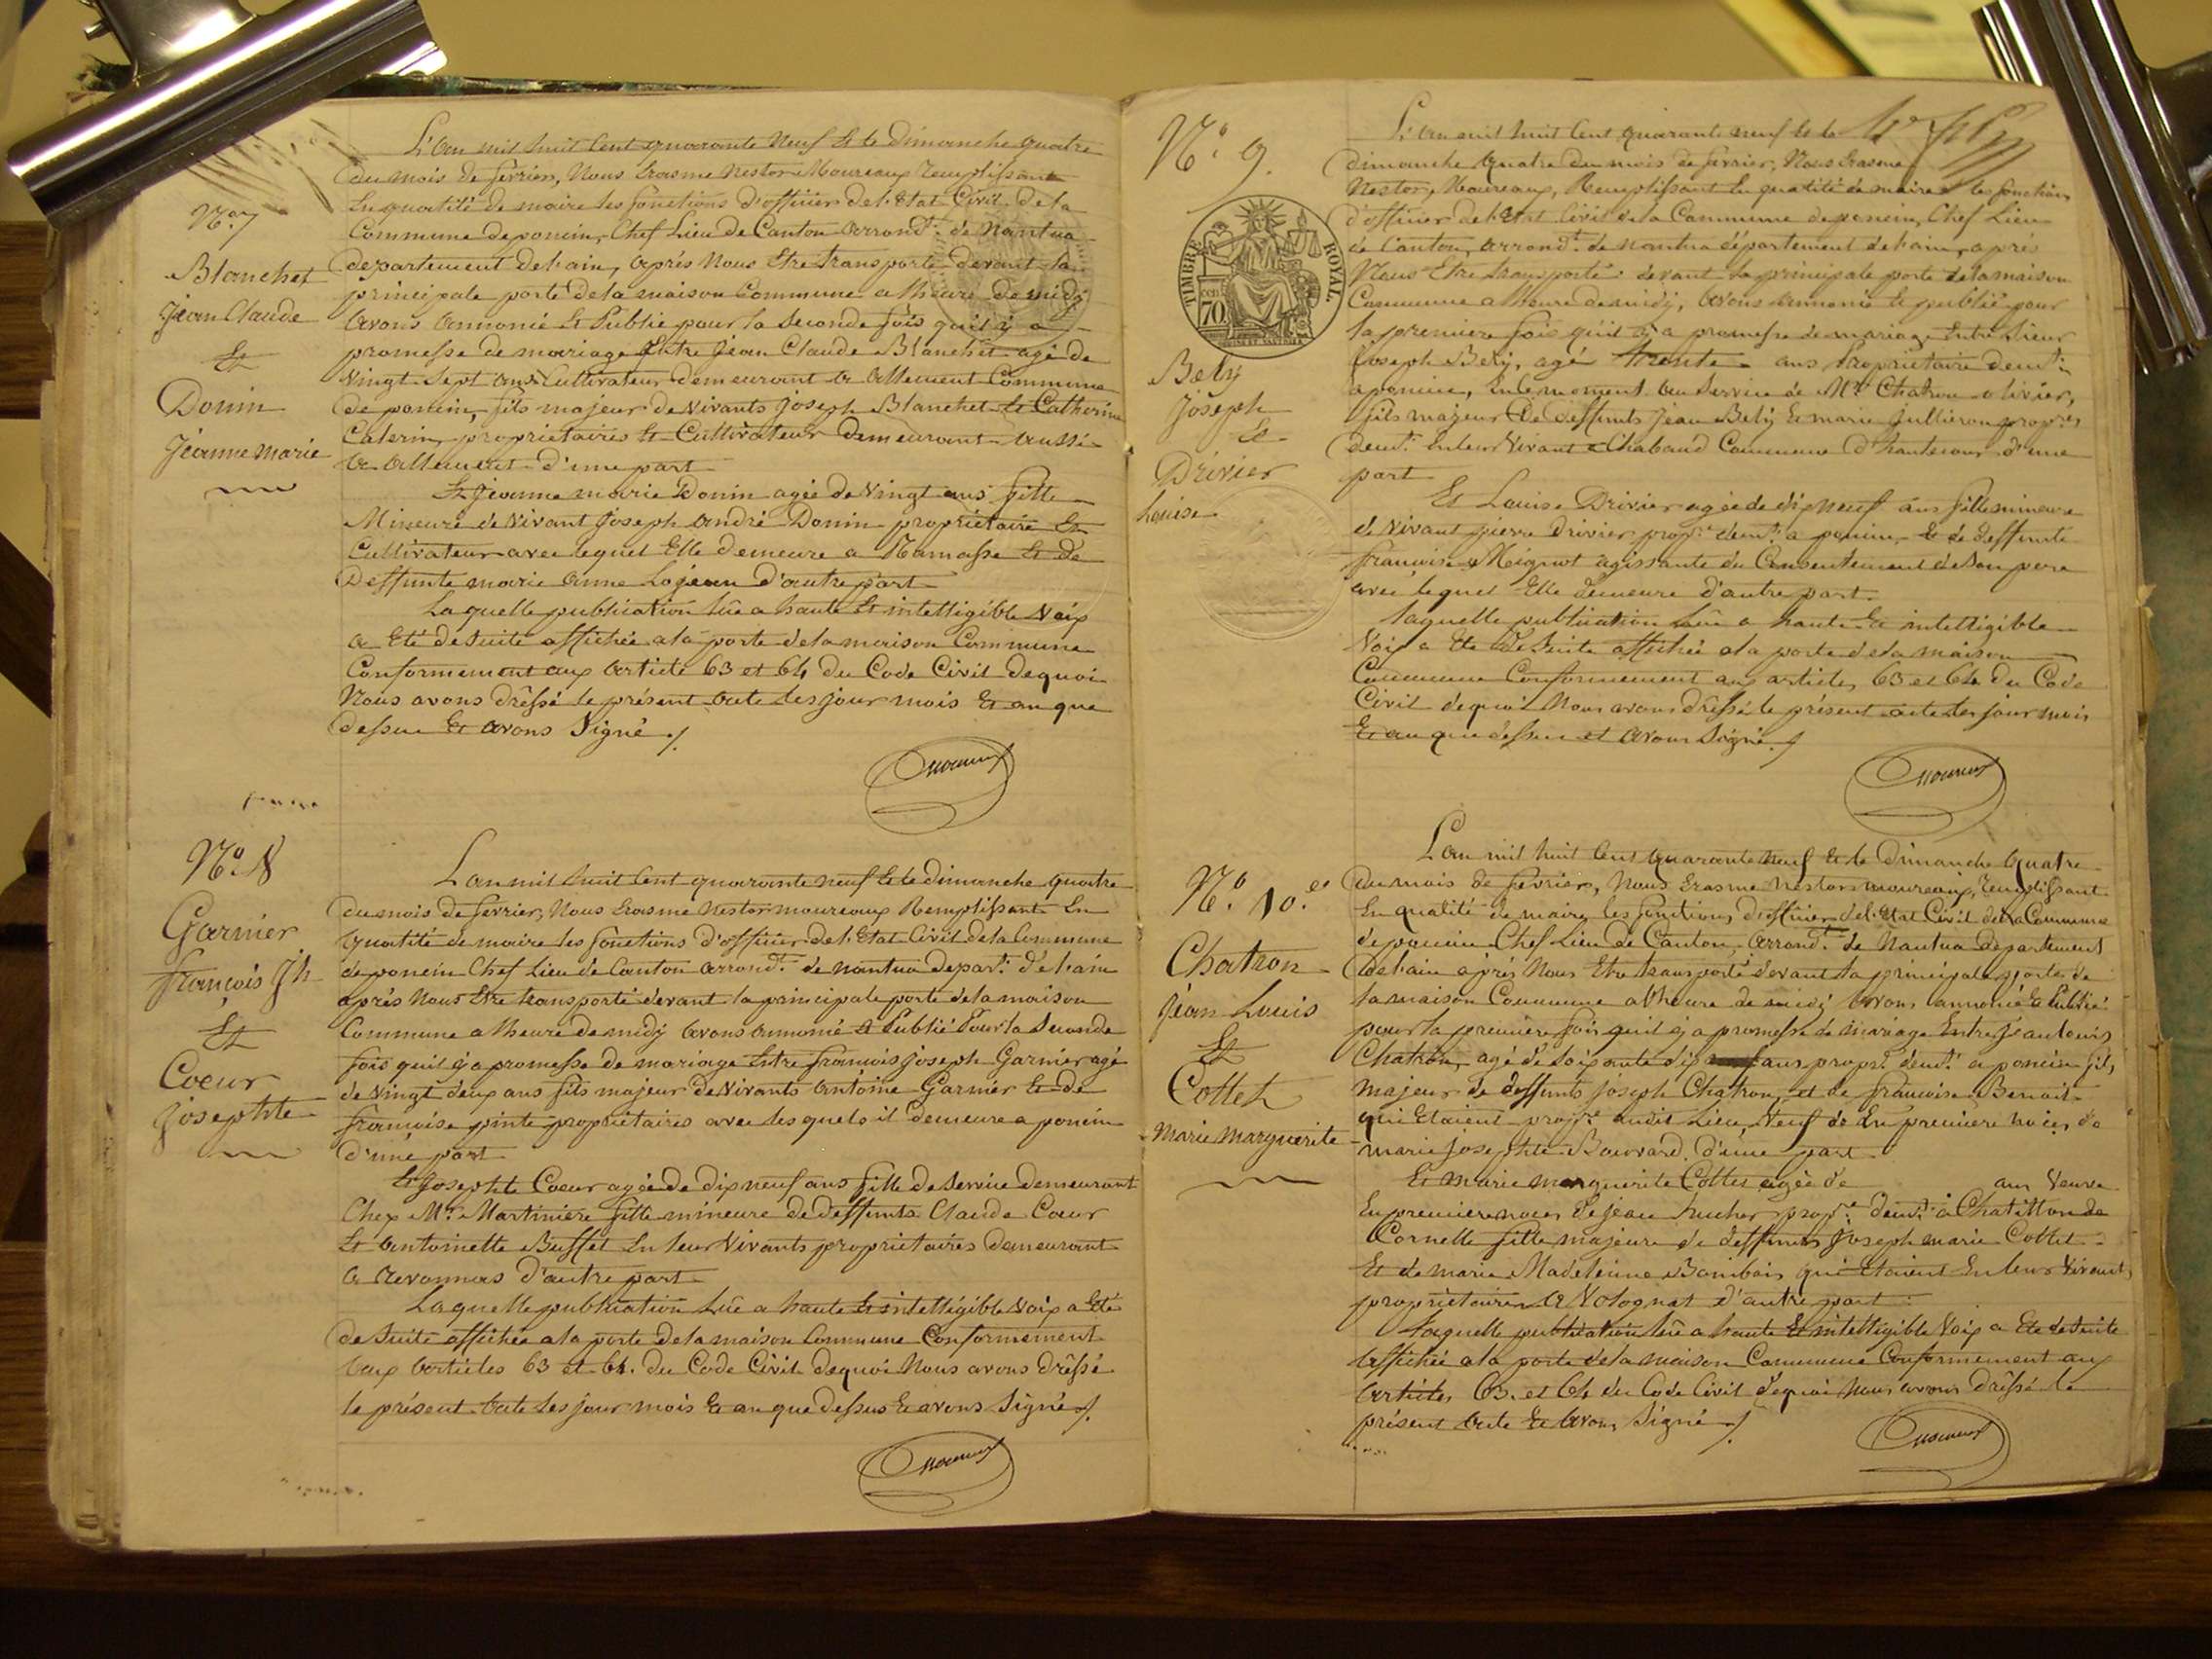 N°. 7
Blanchet
Jean Claude
Et
Donin
Jeanne marie
L'an mil huit Cent quarante Neuf Et le Dimanche quatre
du mois de fevrier, Nous Erasme Nestor Moureaux Remplissant
En qualité de maire les fonctions d'officier de l'Etat Civil de la
Commune de poncin, Chef Lieu de Canton arrond.t de Nantua
departement de l'ain, après Nous Etre transporté devant la
principale porte de la maison Commune a l'heure de midy
avons annoncé Et Publié pour la seconde fois qu'il y a
promesse de mariage Entre Jean Claude Blanchet agé de
Vingt Sept ans Cultivateur demeurant a allement Commune
de poncin, fils majeur de Vivants Joseph Blanchet Et Catherine
Caterin, proprietaires Et Cultivateur demeurant aussi
a allement d'une part
Et Jeanne marie Donin agée de Vingt ans fille
Mineure de Vivant Joseph andré Donin proprietaire Et
Cultivateur avec lequel Elle demeure a Ramasse Et de
Deffunte marie anne Lojean d'autre part
Laquelle publication lûe a haute Et intelligible Voix
a Eté de suite affichée a la porte de la maison Commune
Conformement aux article 63 et 64 du Code Civil de quoi
Nous avons drêssé le présent acte les jour mois Et an que
dessus Et avons Signé ./.
N°. 8
Garnier
françois Jh
Et
Coeur
Josephte
L'an mil huit Cent quarante neuf Et le dimanche quatre
du mois de fevrier, Nous Erasme Nestor moureaux Remplissant En
qualité de maire les fonctions d'officier de l'Etat Civil de la Commune
de poncin Chef Lieu de Canton arrond.t de nantua depart.t de l'ain
après Nous Etre transporté devant la principale porte de la maison
Commune a l'heure de midy avons annoncé Et Publié Pour la seconde
fois qu'il y a promesse de mariage Entre françois joseph Garnier agé
de Vingt deux ans fils majeur de Vivants antoine Garnier Et de
françoise pinte proprietaires avec lesquels il demeure a poncin
d'une part
Et Josephte Coeur agée de dix neuf ans fille de Service demeurant
Chez Mr. Martiniere fille mineure de deffunts Claude Coeur
Et antoinette Buffet En leur Vivants proprietaires demeurant
a Revonnas d'autre part
Laquelle publication lûe a haute Et intelligible Voix a Eté
de suite affichée a la porte de la maison Commune Conformement
aux articles 63 et 64. du Code Civil de quoi Nous avons drêssé
le présent acte les jour mois Et an que dessus Et avons Signé ./.
N°. 9.
TIMBRE ROYAL.
70
Bely
Joseph
Et
Drivier
Louise
L'an mil huit Cent quarante neuf Et le
dimanche quatre du mois de fevrier, Nous Erasme
Nestor, Moureaux, Remplissant En qualité de maire les fonctions
d'officier de l'Etat Civil de la Commune de poncin, Chef Lieu
de Canton, arrond.t de nantua département de l'ain, après
Nous Etre transporté devant la principale porte de la maison
Commune a l'heure de midy, avons annoncé Et publié pour
la premiere fois qu'il y a promesse de mariage Entre Sieur
Joseph Bely, agé trente ans Proprietaire dem.t
a poncin, En le moment au Service de Mr. Chatron olivier,
fils majeur De deffunts Jean Bely Et marie Jullieron propr.es
dem.t En leur Vivant a Chabaud Commune d'hautecour d'une
part
Et Louise Drivier agée de dix neuf ans fille mineure
de Vivant pierre Drivier propr.e dem.t a poncin, Et de deffunte
françoise Meignot agissante du Consentement de son pere
avec lequel Elle demeure d'autre part.
Laquelle publication lûe a haute Et intelligible
Voix a Eté de suite affichée a la porte de la maison
Commune Conformement aux articles 63 et 64 du Code
Civil de quoi Nous avons drêssé le présent acte les jour mois
Et an que dessus et avons Signé. /.
N°. 10.
Chatron
Jean Louis
Et
Cottet
Marie Marguerite
L'an mil huit Cent quarante neuf Et le Dimanche quatre
du mois de fevrier, Nous Erasme Nestor moureaux, Remplissant
En qualité de maire les fonctions d'officier de l'Etat Civil de la Commune
de poncin Chef Lieu de Canton, arrond.t de Nantua département
De l'ain après Nous Etre transporté devant la principale porte de
la maison Commune a l'heure de midi avons annoncé Et Publié
pour la premiere fois qu'il y a promesse de mariage Entre jean louis
Chatron, agé de Soixante dix ans propr.e dem.t a poncin fils
majeur de deffunts Joseph Chatron, et de francoise Benoit
qui Etaient propr.e audit Lieu, Veuf de En premiere noces de
marie Josephte Bouvard, d'une part
Et marie marguerite Cottet agée de ans Veuve
En premiere noces de jean propr.e dem.t a Chatillon de
Cornelle fille majeure de deffunts Joseph marie Cottet
Et de marie Madeleine Bombois qui Etaient En leur Vivants
proprietaires a Volognat d'autre part.
Laquelle publication lûe a haute Et intelligible Voix a Eté de suite
affichée a la porte de la maison Commune Conformement aux
articles 63. et 64 du Code Civil de quoi Nous avons drêssé le
présent acte Et avons Signé /.